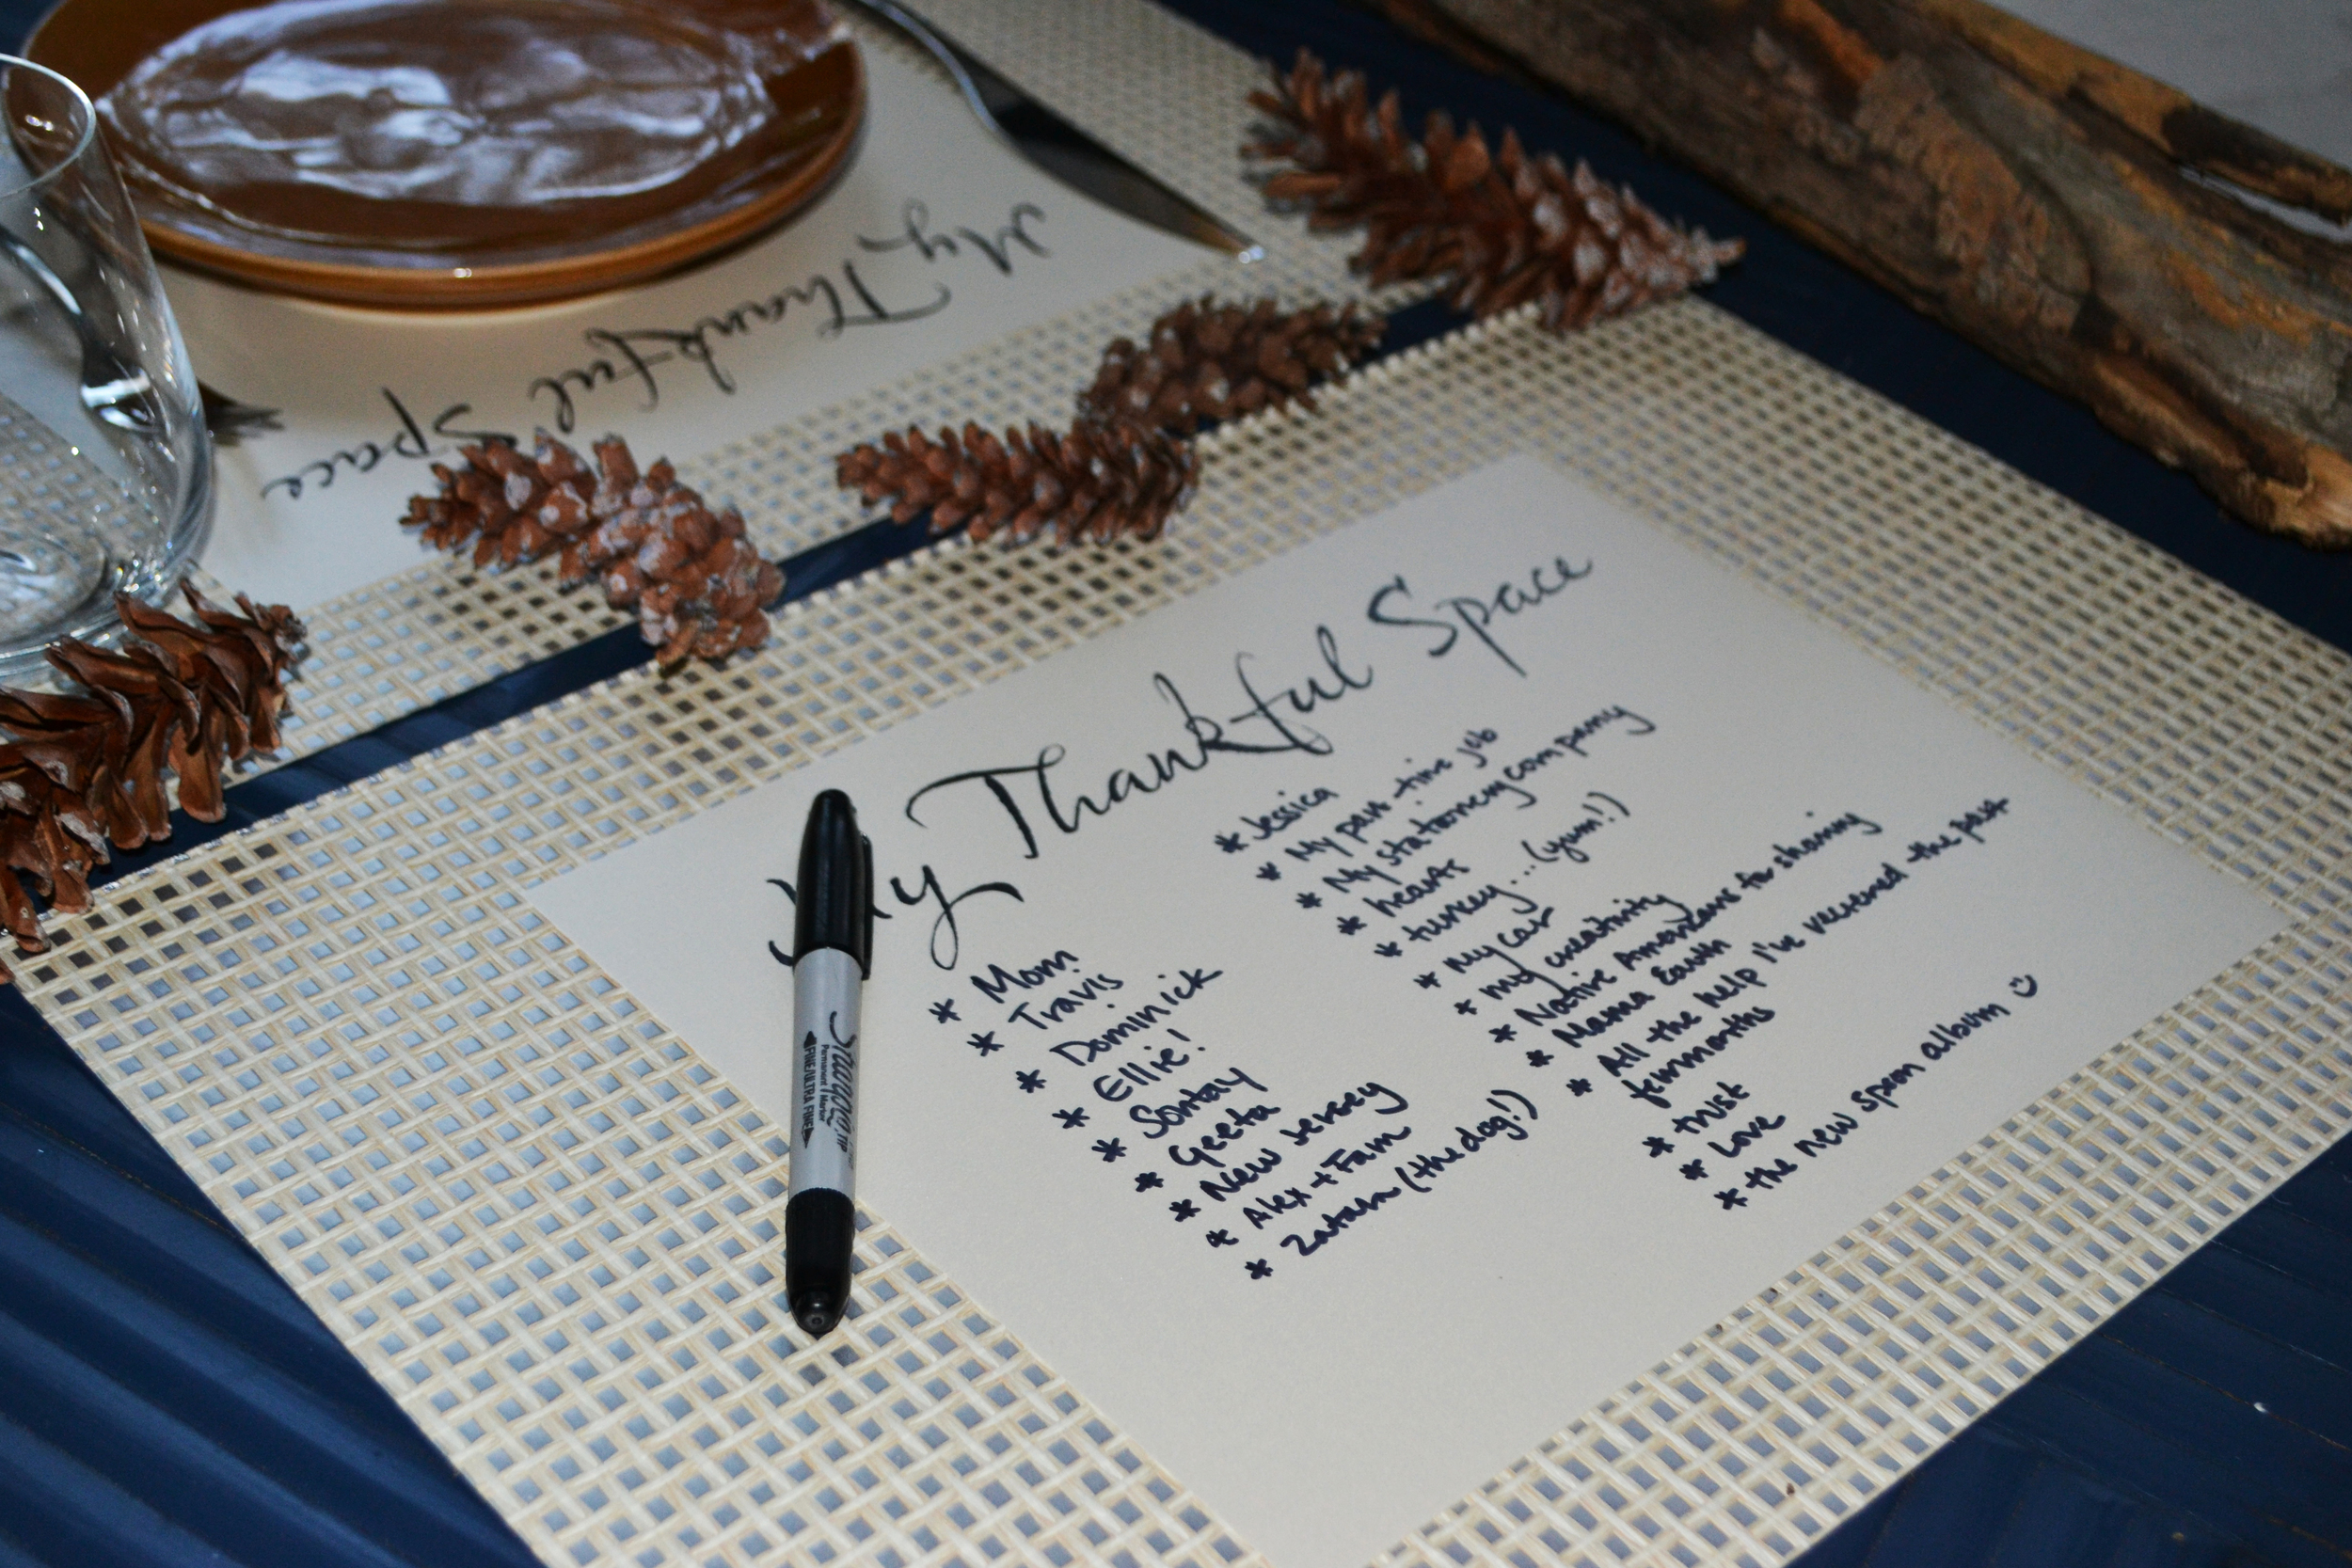 My Thankful Space
My Thankful Space
* Mom
* Travis
* Dominick
* Ellie!
* Sontay
* Geeta
* New Jersey
* Alex + Fam
* Zatah (the dog!)
* Jessica
* My part-time job
* My stationery company
* hearts
* turkey...(yum!)
* My car
* my creativity
* Native Americans for sharing
* Mama Earth
* All the help I've received the past
few months
* trust
* Love
* the new Spoon album
Sharpie
Permanent Marker
FINE/ULTRA FINE